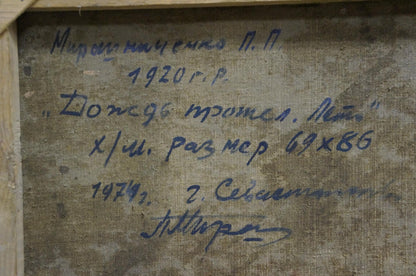 Мирошниченко П.П
1920 г.р.
„Дождь прошел. Лето"
х/м. размер 69х86
1974г. г. Севастополь